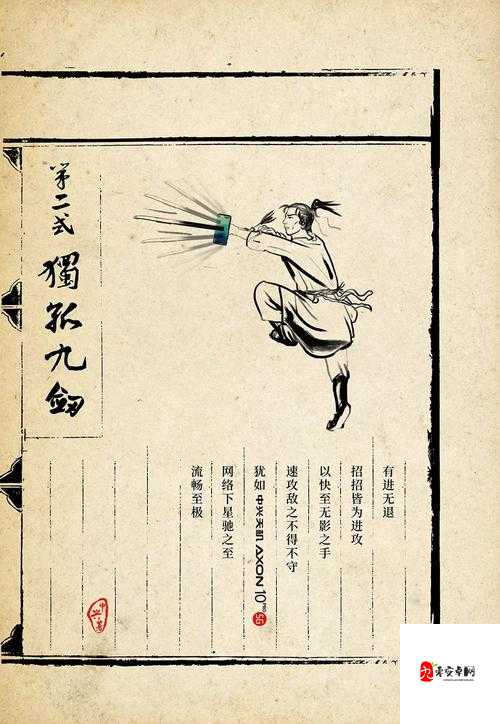 第二式
獨孤九劍
有进无退
招招皆为进攻
以快至无影之手
速攻敌之不得不守
犹如中兴天机AXON 10 PRO 5G
网络下星驰之至
流畅至极